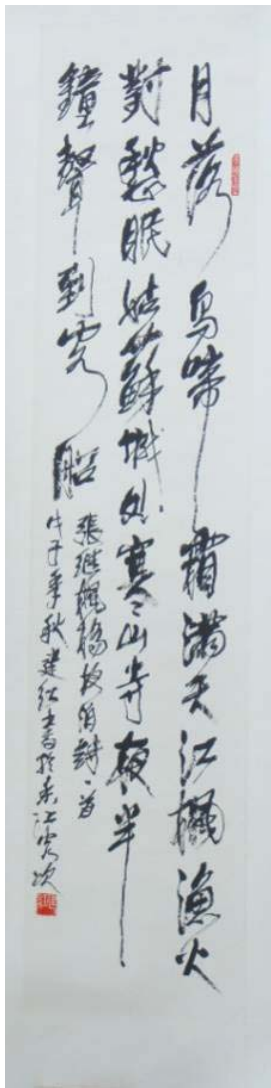 月落烏啼霜滿天江楓漁火
對愁眠姑蘇城外寒山寺夜半
鐘聲到客船
張繼楓橋夜泊詩一首
戊子季秋建 書於 江客次